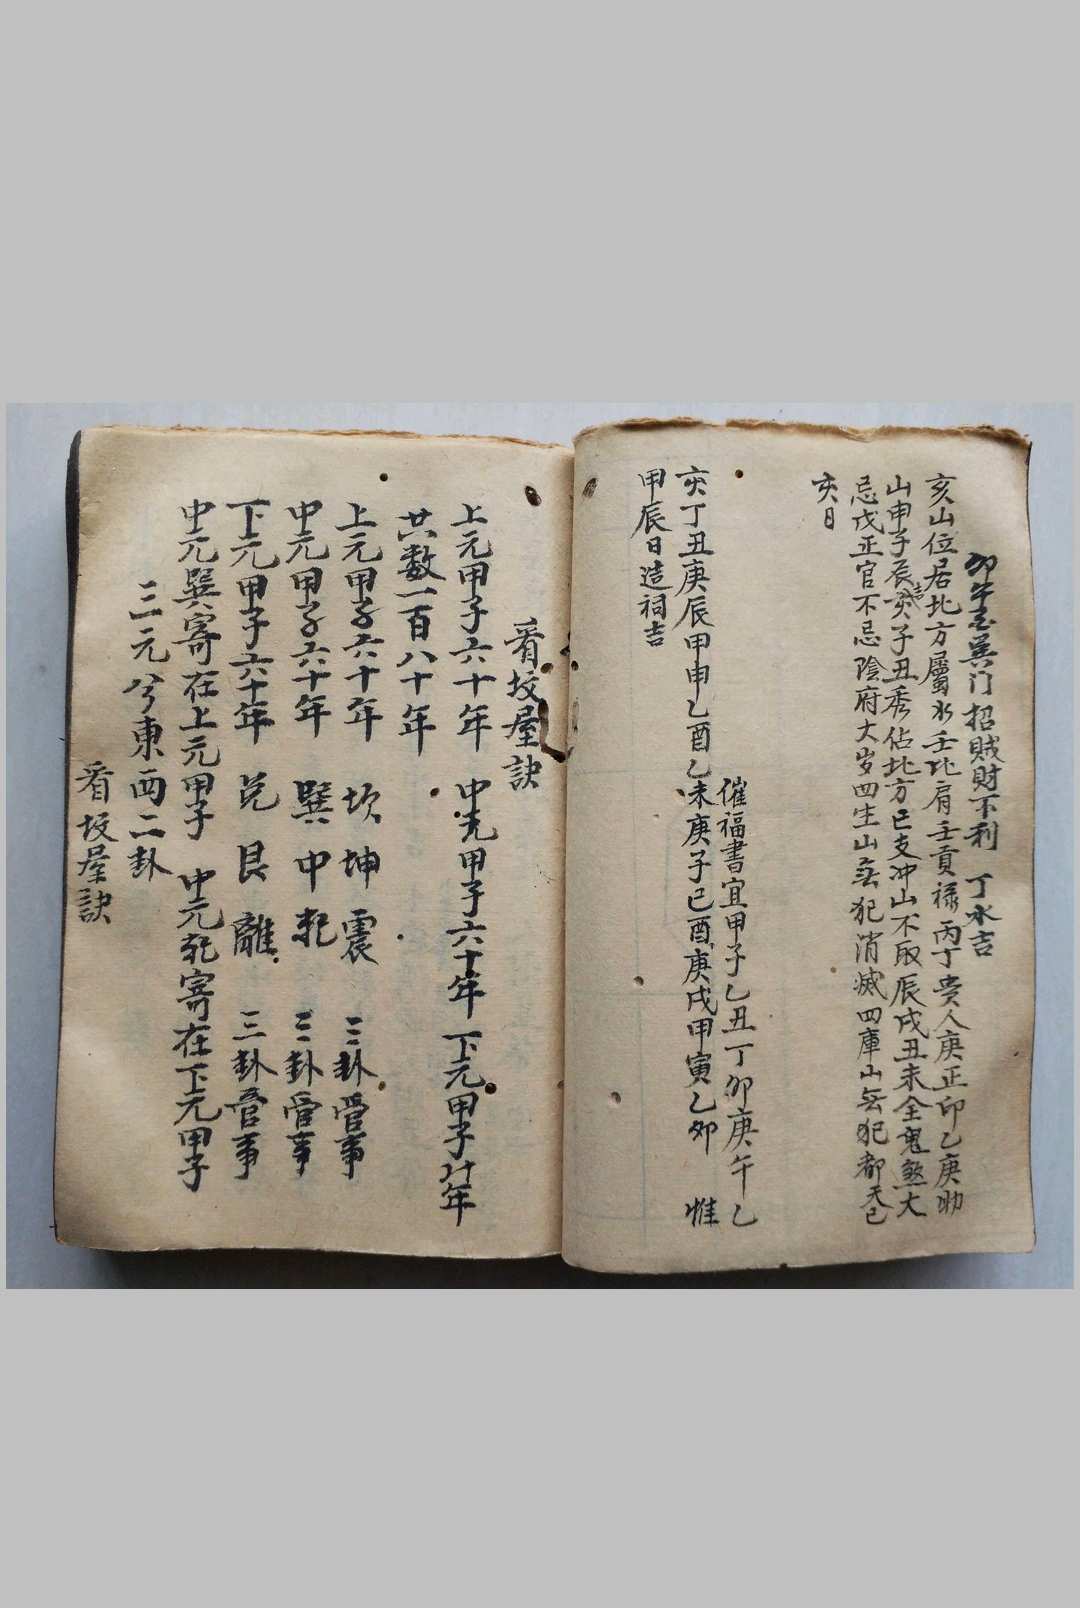 卯午 巽门招賊財不利 丁水吉
亥山位居北方屬水壬比肩壬貢禄丙丁貴人庚正印乙庚助
山申子辰亥子丑秀佔北方已支冲山不取辰戌丑未全鬼煞大
忌戊正官不忌陰府大岁四生山無犯消滅四庫山無犯都天已
亥日
催福書宜甲子乙丑丁卯庚午乙
亥丁丑庚辰甲申乙酉乙未庚子己酉庚戌甲寅乙卯 惟
甲辰日造祠吉
看坟屋訣
上元甲子六十年 中元甲子六十年 下元甲子六十年
共数一百八十年
上元甲子六十年 坎坤震 三卦管事
中元甲子六十年 巽中乾 三卦管事
下元甲子六十年 兑艮離 三卦管事
中元巽寄在上元甲子 中元乾寄在下元甲子
三元兮東西二卦
看坟屋訣